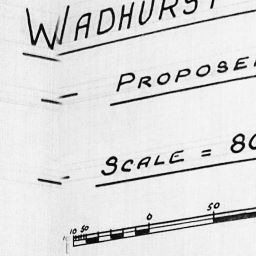 WADHURST
PROPOSE
SCALE = 80
10 50 0 50